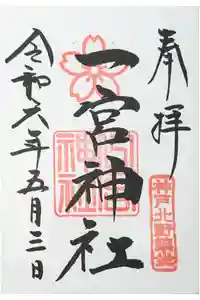 奉拝
一宮神社
令和六年五月三日